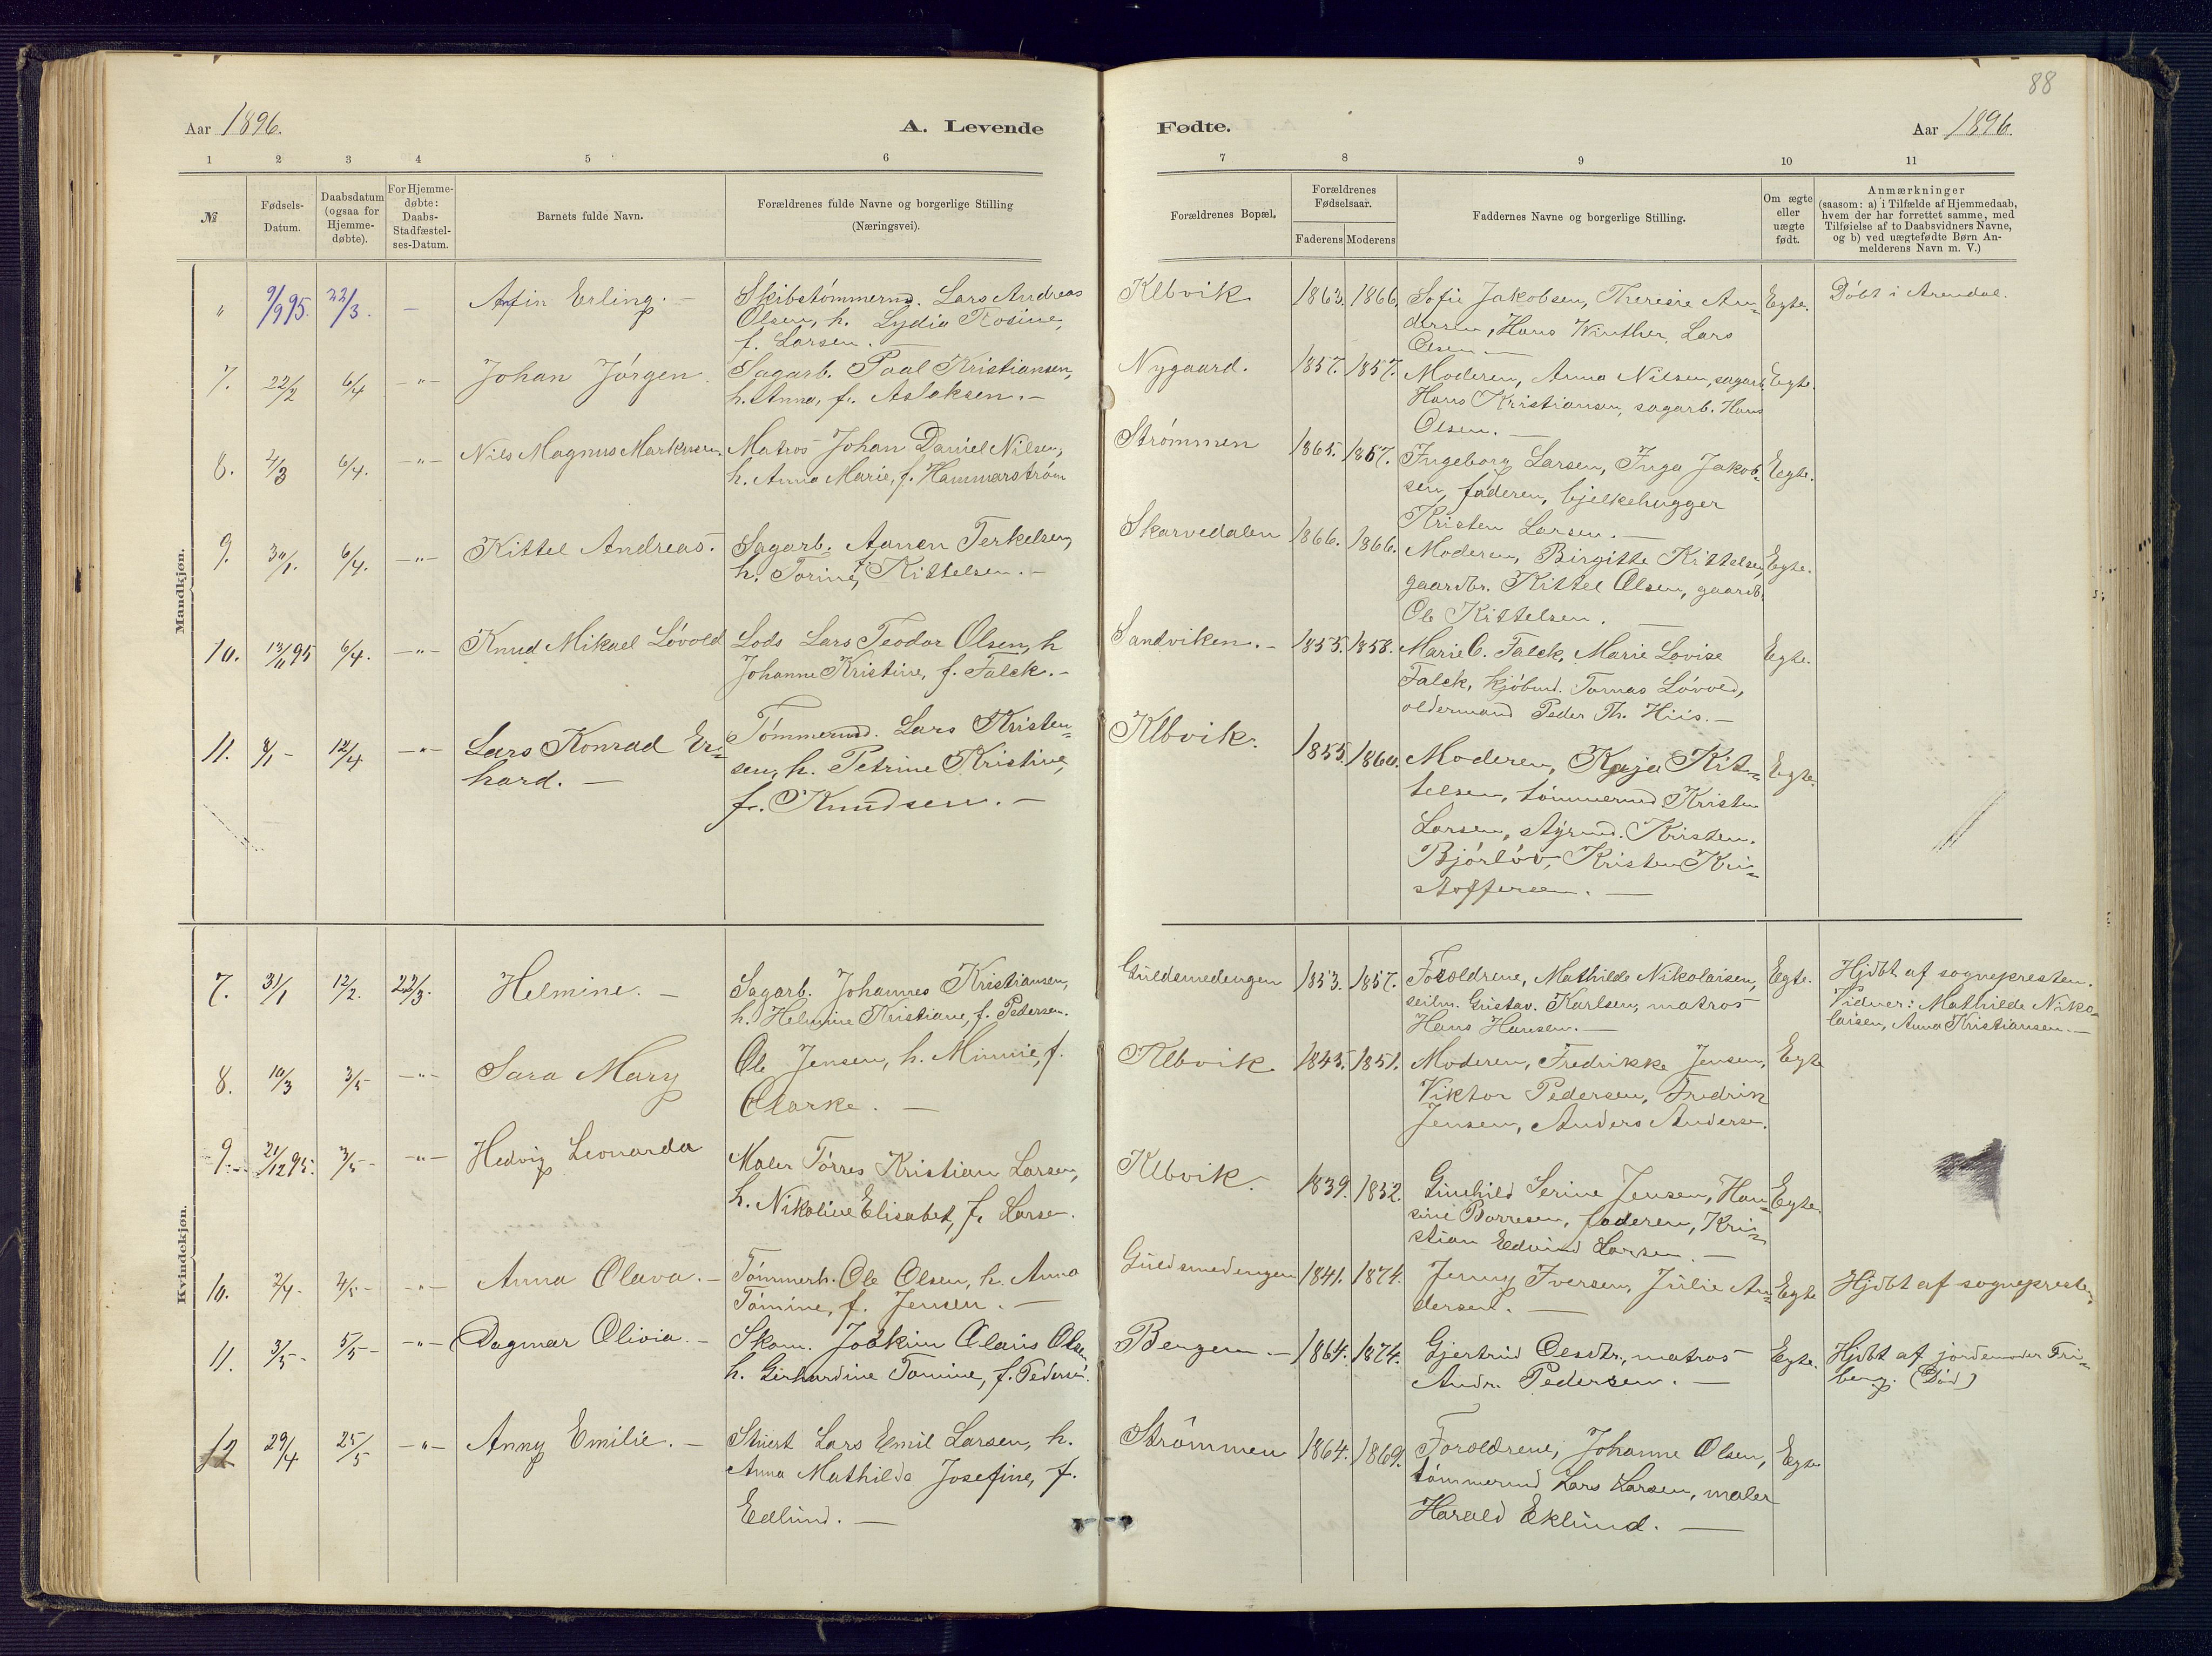 88
Aar 1896.
A. Levende Fødte.
Aar 1896.
1 2 3 4 5 6 7 8 9 10 11
№
Fødsels-Datum.
Daabsdatum (ogsaa for Hjemmedøbte).
For Hjemmedøbte: Daabs-Stadfæstelses-Datum.
Barnets fulde Navn.
Forældrenes fulde Navne og borgerlige Stilling
(Næringsvei).
Forældrenes Bopæl.
Forældrenes Fødselsaar.
Faderens Moderens
Faddernes Navne og borgerlige Stilling.
Om ægte eller uægte født.
Anmærkninger
(saasom: a) i Tilfælde af Hjemmedaab,
hvem der har forrettet samme, med
Tilføielse af to Daabsvidners Navne,
og b) ved uægtefødte Børn An-
melderens Navn m. V.)
Mandkjøn.
" 9/9 95. 22/3. — Arfin Erling. —
Skibstømmermd. Lars Andreas
Olsen, h. Lydia Rosine,
f. Larsen. —
Klbvik 1863. 1866.
Sofie Jakobsen, Theresie An-
dersen, Hans Winther, Lars
Olsen —
Egte.
Døbt i Arendal.
7. 22/2 6/4 —"— Johan Jørgen.
Sagarb. Paal Kristiansen,
h. Anna, f. Aslaksen. —
Nygaard. 1857. 1857.
Moderen, Anna Nilsen, sagarb.
Hans Kristiansen, sagarb. Hans
Olsen. —
Egte.
8. 4/3 6/4. —"— Nils Magnus Markusen.
Matros Johan Daniel Nilsen,
h. Anna Marie, f. Hammarstrøm
Strømmen 1865. 1867.
Ingeborg Larsen, Inga Jakob-
sen, faderen, bjelkehugger
Kristen Larsen. —
Egte.
9. 30/1. 6/4. —"— Kittel Andreas.
Sagarb. Aanen Terkelsen,
h. Torine, f. Kittelsen. —
Skarvedalen 1866. 1866.
Moderen, Birgitte Kittelsen,
gaardbr. Kittel Olsen, gaardb.
Ole Kittelsen. —
Egte.
10. 13/11 95 6/4. —"— Knud Mikael Løvold
Lods Lars Teodor Olsen, h
Johanne Kristine, f. Falck. —
Sandviken. — 1855. 1858.
Marie C. Falck, Marie Lovise
Falck, kjøbmd. Tomas Løvold,
oldermand Peder Th. Hiis. —
Egte.
11. 8/1 — 12/4 —"— Lars Konrad Er-
hard. —
Tømmermd. Lars Kristen-
sen, h. Petrine Kristine,
f. Knudsen. —
Klbvik. 1855. 1860.
Moderen, Kaja Kit-
telsen, tømmermd. Kristen
Larsen, styrmd. Kristen
Bjørløv, Kristen Kri-
stoffersen. —
Egte.
Kvindekjøn.
7. 31/1 12/2. 22/3. Helmine. —
Sagarb. Johannes Kristiansen,
h. Helmine Kristiane, f. Pedersen.
Guldsmedengen 1853. 1857.
Foroldrene, Mathilde Nikolaisen,
seilm. Gustav. Karlsen, matros
Hans Hansen. —
Egte.
Hjdbt af sognepresten.
Vidner: Mathilde Niko-
laisen, Anna Kristiansen. —
8. 10/3 3/5 —"— Sara Mary
Ole Jensen, h. Minnie, f.
Clarke. —
Klbvik 1845. 1851.
Moderen, Fredrikke Jensen,
Viktor Pedersen, Fredrik
Jensen, Anders Anderse.
Egte
9. 21/12 95. 3/5 — —"— Hedvig Leonarda
Maler Tørres Kristian Larsen,
h. Nikoline Elisabet, f. Larse.
Klbvik. 1839. 1852.
Gunhild Serine Jensen, Han-
sine Borresen, faderen, Kri-
stian Edvind Larsen. —
Egte.
10. 2/4 — 4/5 — —"— Anna Olava. —
Tømmerh. Ole Olsen, h. Anna
Tomine, f. Jensen. —
Guldsmedengen 1841. 1874.
Jenny Iversen, Julie An-
dersen. —
Egte
Hjdbt af sognepresten.
11. 3/5 — 5/5 — —"— Dagmar Olivia. —
Skom. Joakim Olaus Olsen
h. Gerhardine Tomine, f. Pedersen.
Bergen. — 1864. 1874.
Gjertrud Olesdtr., matros
Andr. Pedersen. —
Egte.
Hjdbt af jordemoder Fri-
berg. (Død)
12 29/4 25/5 —"— Anny Emilie. —
Stuert Lars Emil Larsen, h.
Anna Mathilde Josefine, f.
Edlund. —
Strømmen 1864. 1869.
Foroldrene, Johanne Olsen,
tømmermd Lars Larsen, maler
Harald Eklund. —
Egte